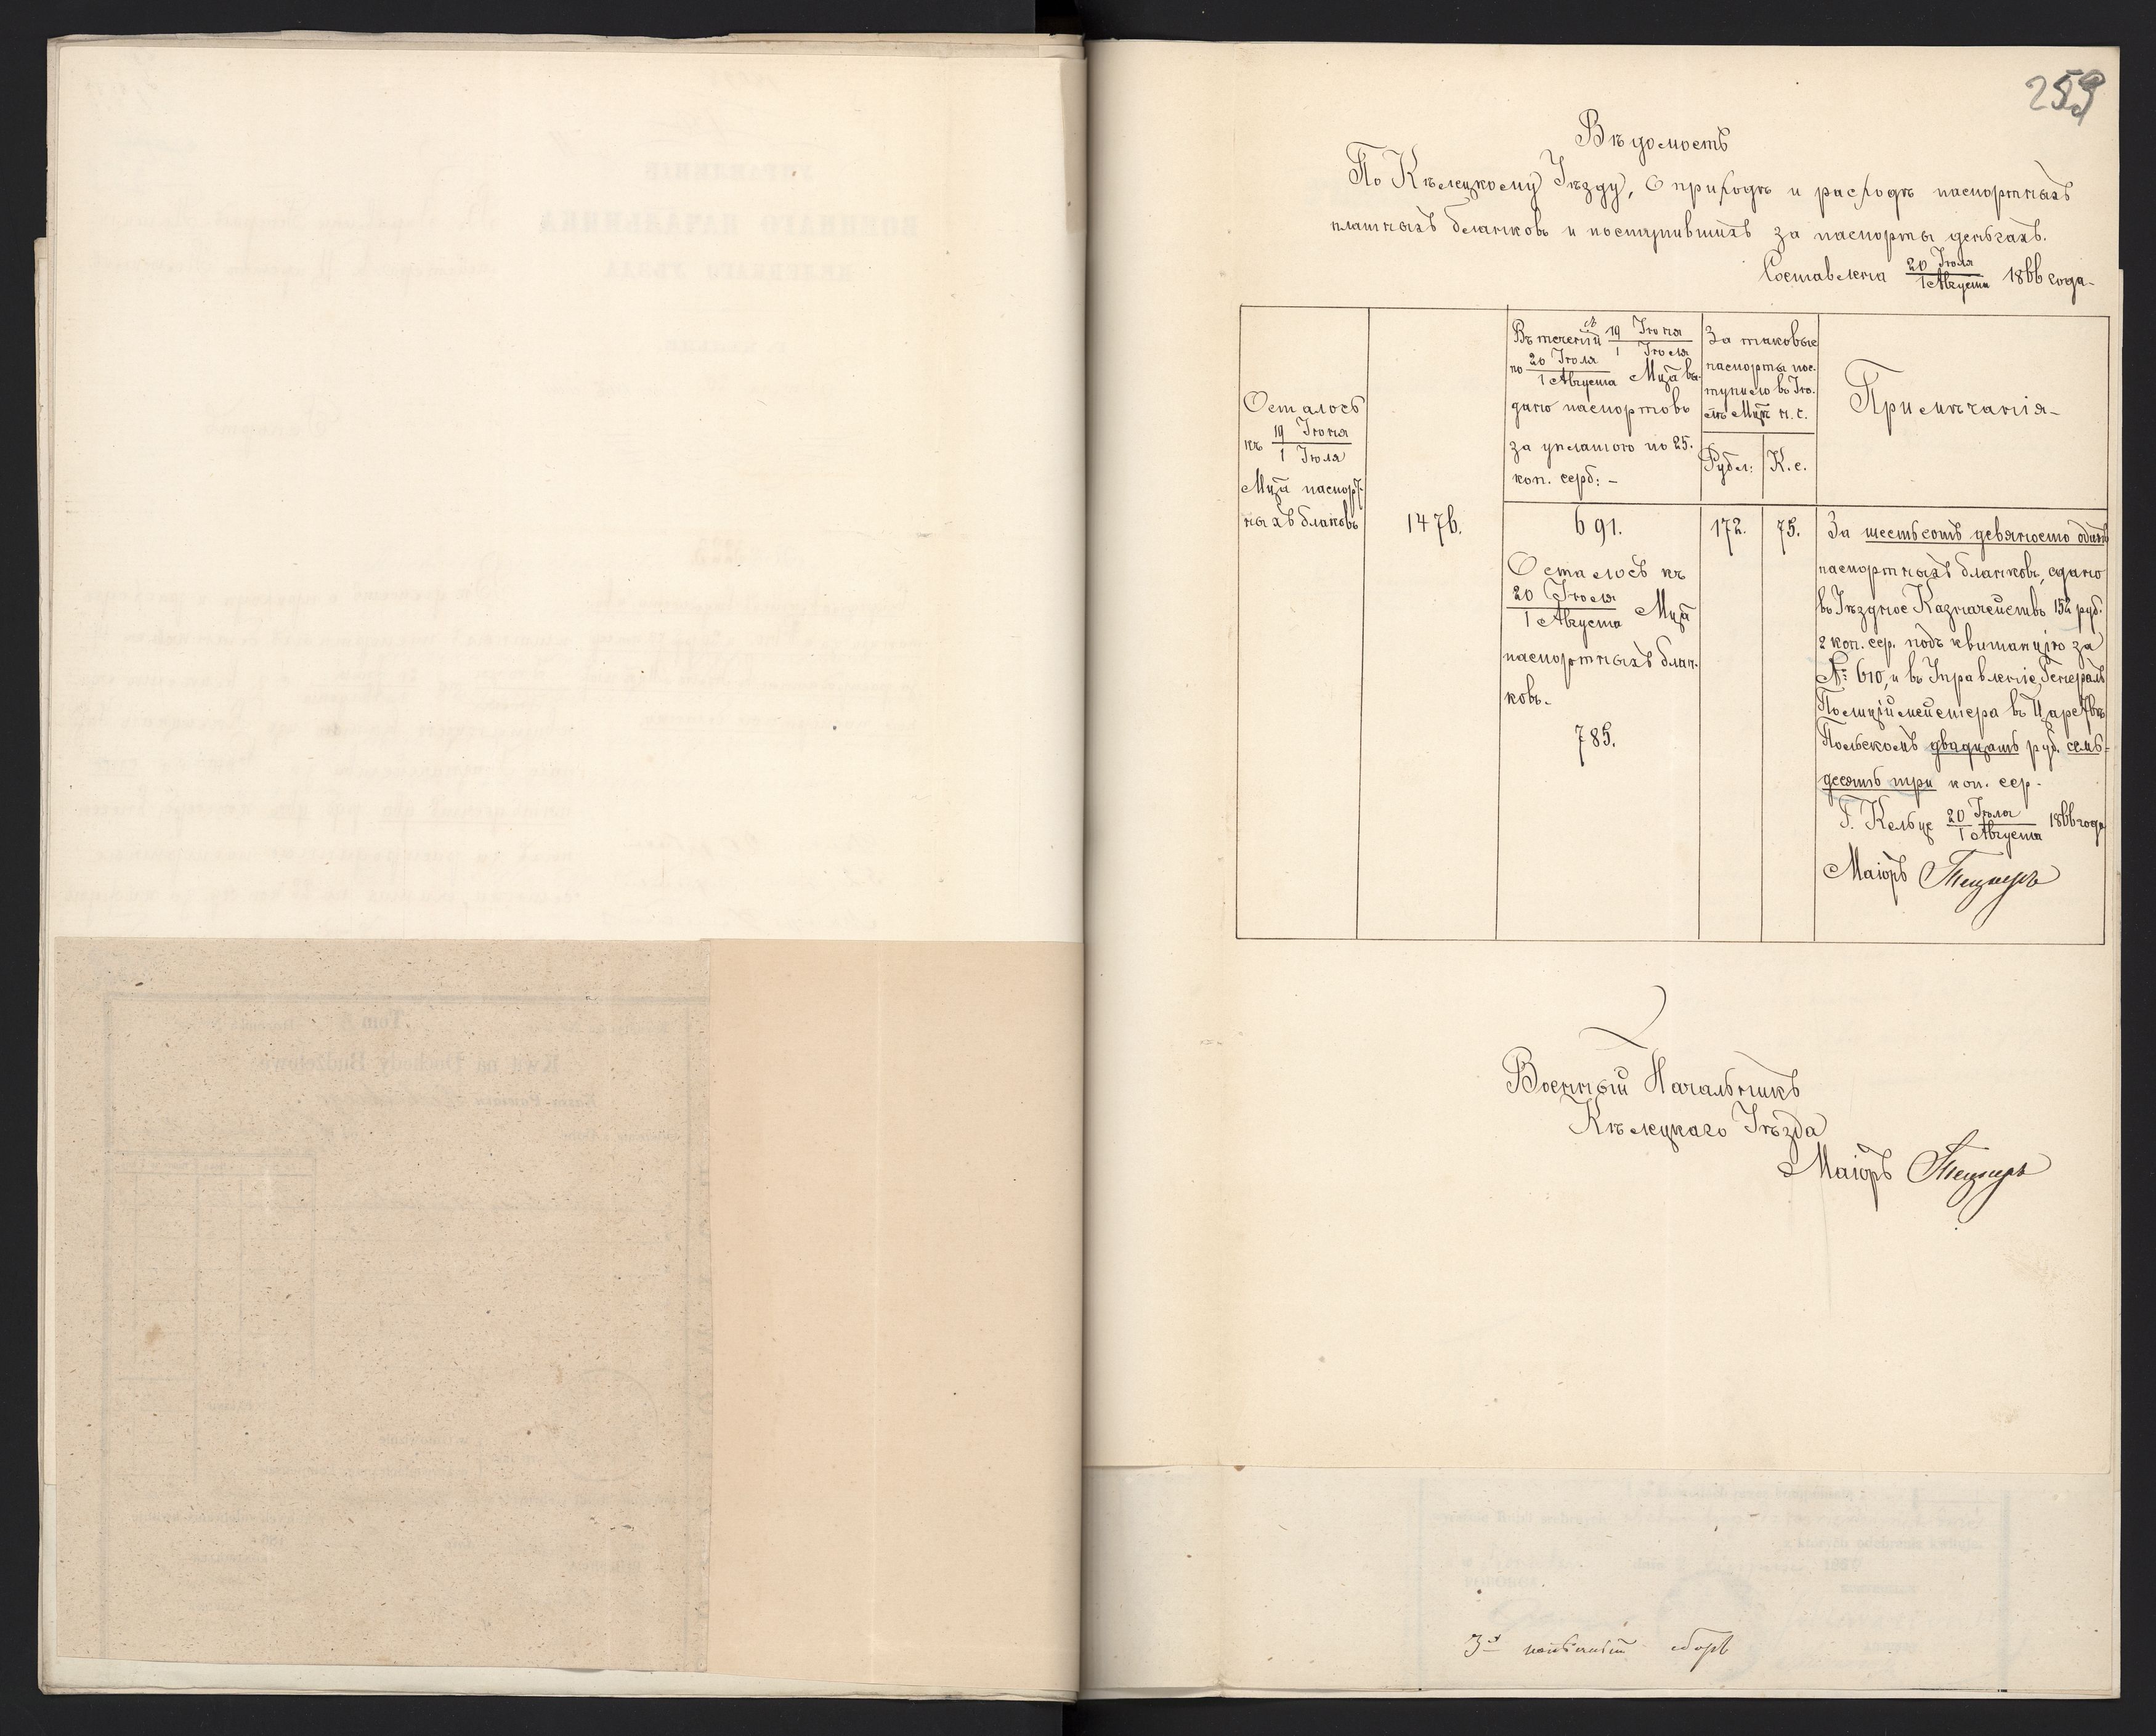 259
Вѣдомость
По Кѣлецкому Уѣзду, О приходѣ и расходѣ паспортныхъ
платныхъ бланковъ и поступившихъ за паспорты деньгахъ.
Составлена 20 Іюля / 1 Августа 1866 года.
Осталось
къ 19 Іюня / 1 Іюля
Мца паспорт-
ныхъ бланковъ
1476.
Въ теченіи съ 19 Іюня / 1 Іюля
по 20 Іюля / 1 Августа Мца вы-
дано паспортовъ
за уплатою по 25.
коп. серб: -
691.
Осталось къ
20 Іюля / 1 Августа Мца
паспортныхъ блан-
ковъ.
785.
За таковые
паспорты пос-
тупило въ Ію-
лѣ Мцѣ н. с.
Рубл: К. с.
172. 75.
Примѣчанія
За шестьсотъ девяносто одинъ
паспортныхъ бланковъ, сдано
въ Уѣздное Казначейство 152 руб.
2 коп. сер. подъ квитанцію за
№ 610, и въ Управленіе Генералъ
Полиціймейстера въ Царствѣ
Польскомъ двадцать руб. семь-
десятъ три коп. сер.
Г. Кельце 20 Іюля / 1 Августа 1866 года
Маіоръ
Военный Начальникъ
Кѣлецкаго Уѣзда
Маіоръ